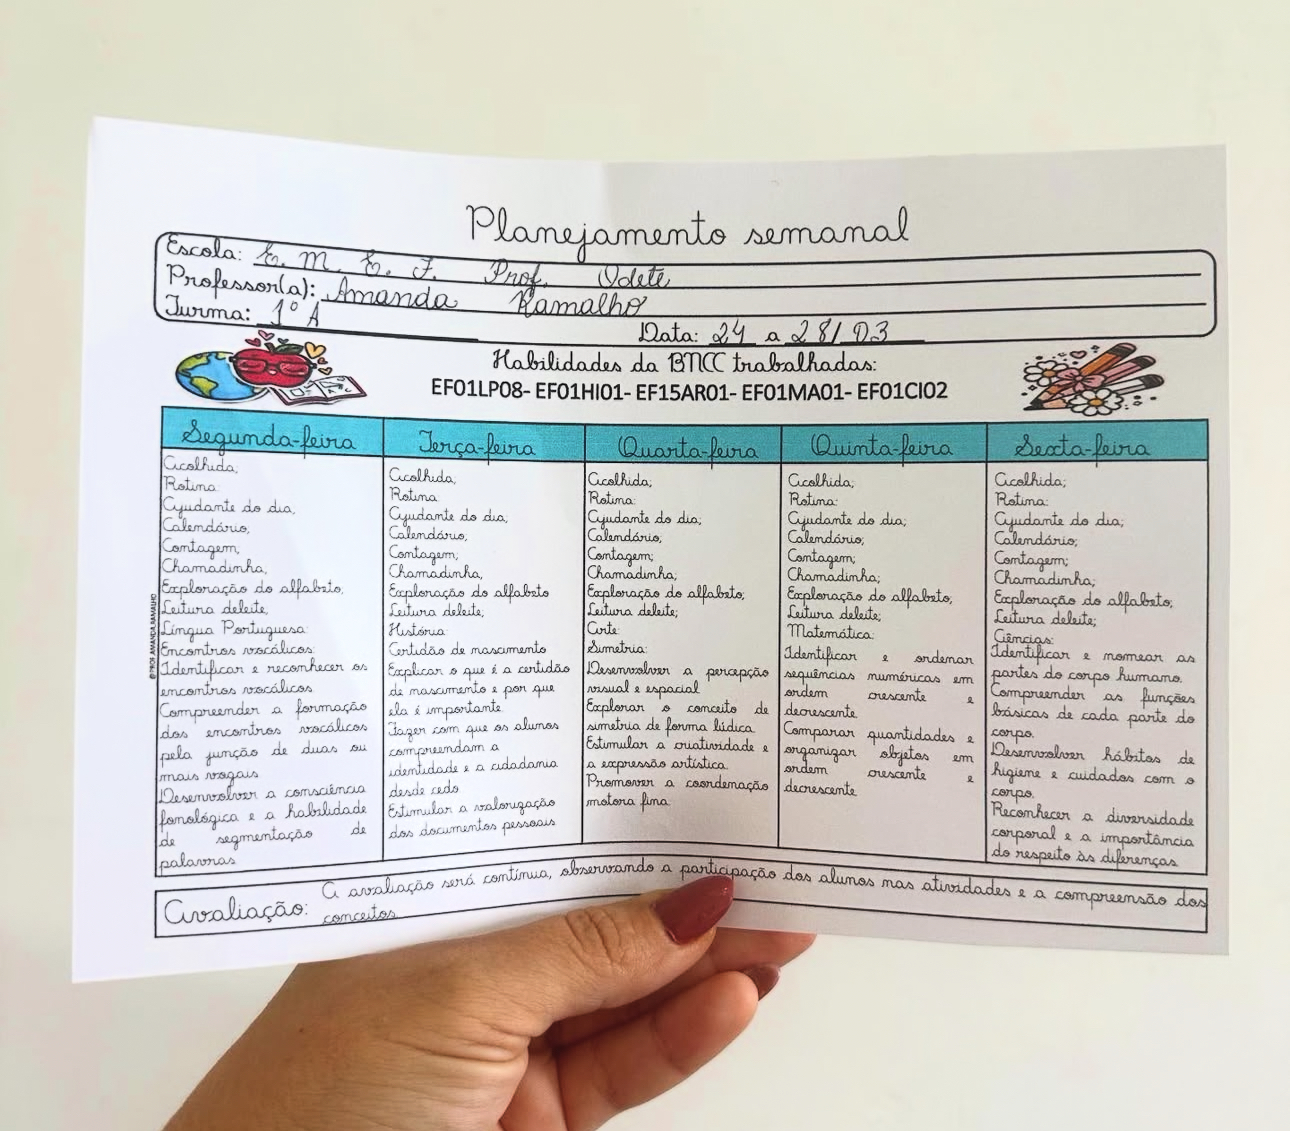 Planejamento semanal
Escola: E. M. E. F. Prof. Odete
Professor(a): Amanda Ramalho
Turma: 1º A
Data: 24 a 28/03
Habilidades da BNCC trabalhadas:
EF01LP08- EF01HI01- EF15AR01- EF01MA01- EF01CI02
Segunda-feira
Acolhida;
Rotina:
Ajudante do dia;
Calendário;
Contagem;
Chamadinha;
Exploração do alfabeto;
Leitura deleite;
Língua Portuguesa:
Encontros vocálicos:
Identificar e reconhecer os
encontros vocálicos
Compreender a formação
dos encontros vocálicos
pela junção de duas ou
mais vogais
Desenvolver a consciência
fonológica e a habilidade
de segmentação de
palavras
Terça-feira
Acolhida;
Rotina:
Ajudante do dia;
Calendário;
Contagem;
Chamadinha;
Exploração do alfabeto
Leitura deleite;
História
Certidão de nascimento
Explicar o que é a certidão
de nascimento e por que
ela é importante
Fazer com que os alunos
compreendam a
identidade e a cidadania
desde cedo
Estimular a valorização
dos documentos pessoais
Quarta-feira
Acolhida;
Rotina:
Ajudante do dia;
Calendário;
Contagem;
Chamadinha;
Exploração do alfabeto;
Leitura deleite;
Arte:
Simetria:
Desenvolver a percepção
visual e espacial
Explorar o conceito de
simetria de forma lúdica.
Estimular a criatividade e
a expressão artística.
Promover a coordenação
motora fina.
Quinta-feira
Acolhida;
Rotina:
Ajudante do dia;
Calendário;
Contagem;
Chamadinha;
Exploração do alfabeto;
Leitura deleite;
Matemática:
Identificar e ordenar
sequências numéricas em
ordem crescente e
decrescente.
Comparar quantidades e
organizar objetos em
ordem crescente e
decrescente.
Sexta-feira
Acolhida;
Rotina:
Ajudante do dia;
Calendário;
Contagem;
Chamadinha;
Exploração do alfabeto;
Leitura deleite;
Ciências:
Identificar e nomear as
partes do corpo humano.
Compreender as funções
básicas de cada parte do
corpo.
Desenvolver hábitos de
higiene e cuidados com o
corpo.
Reconhecer a diversidade
corporal e a importância
do respeito às diferenças
@PROF.AMANDA.RAMALHO
Avaliação: A avaliação será contínua, observando a participação dos alunos nas atividades e a compreensão dos
conceitos